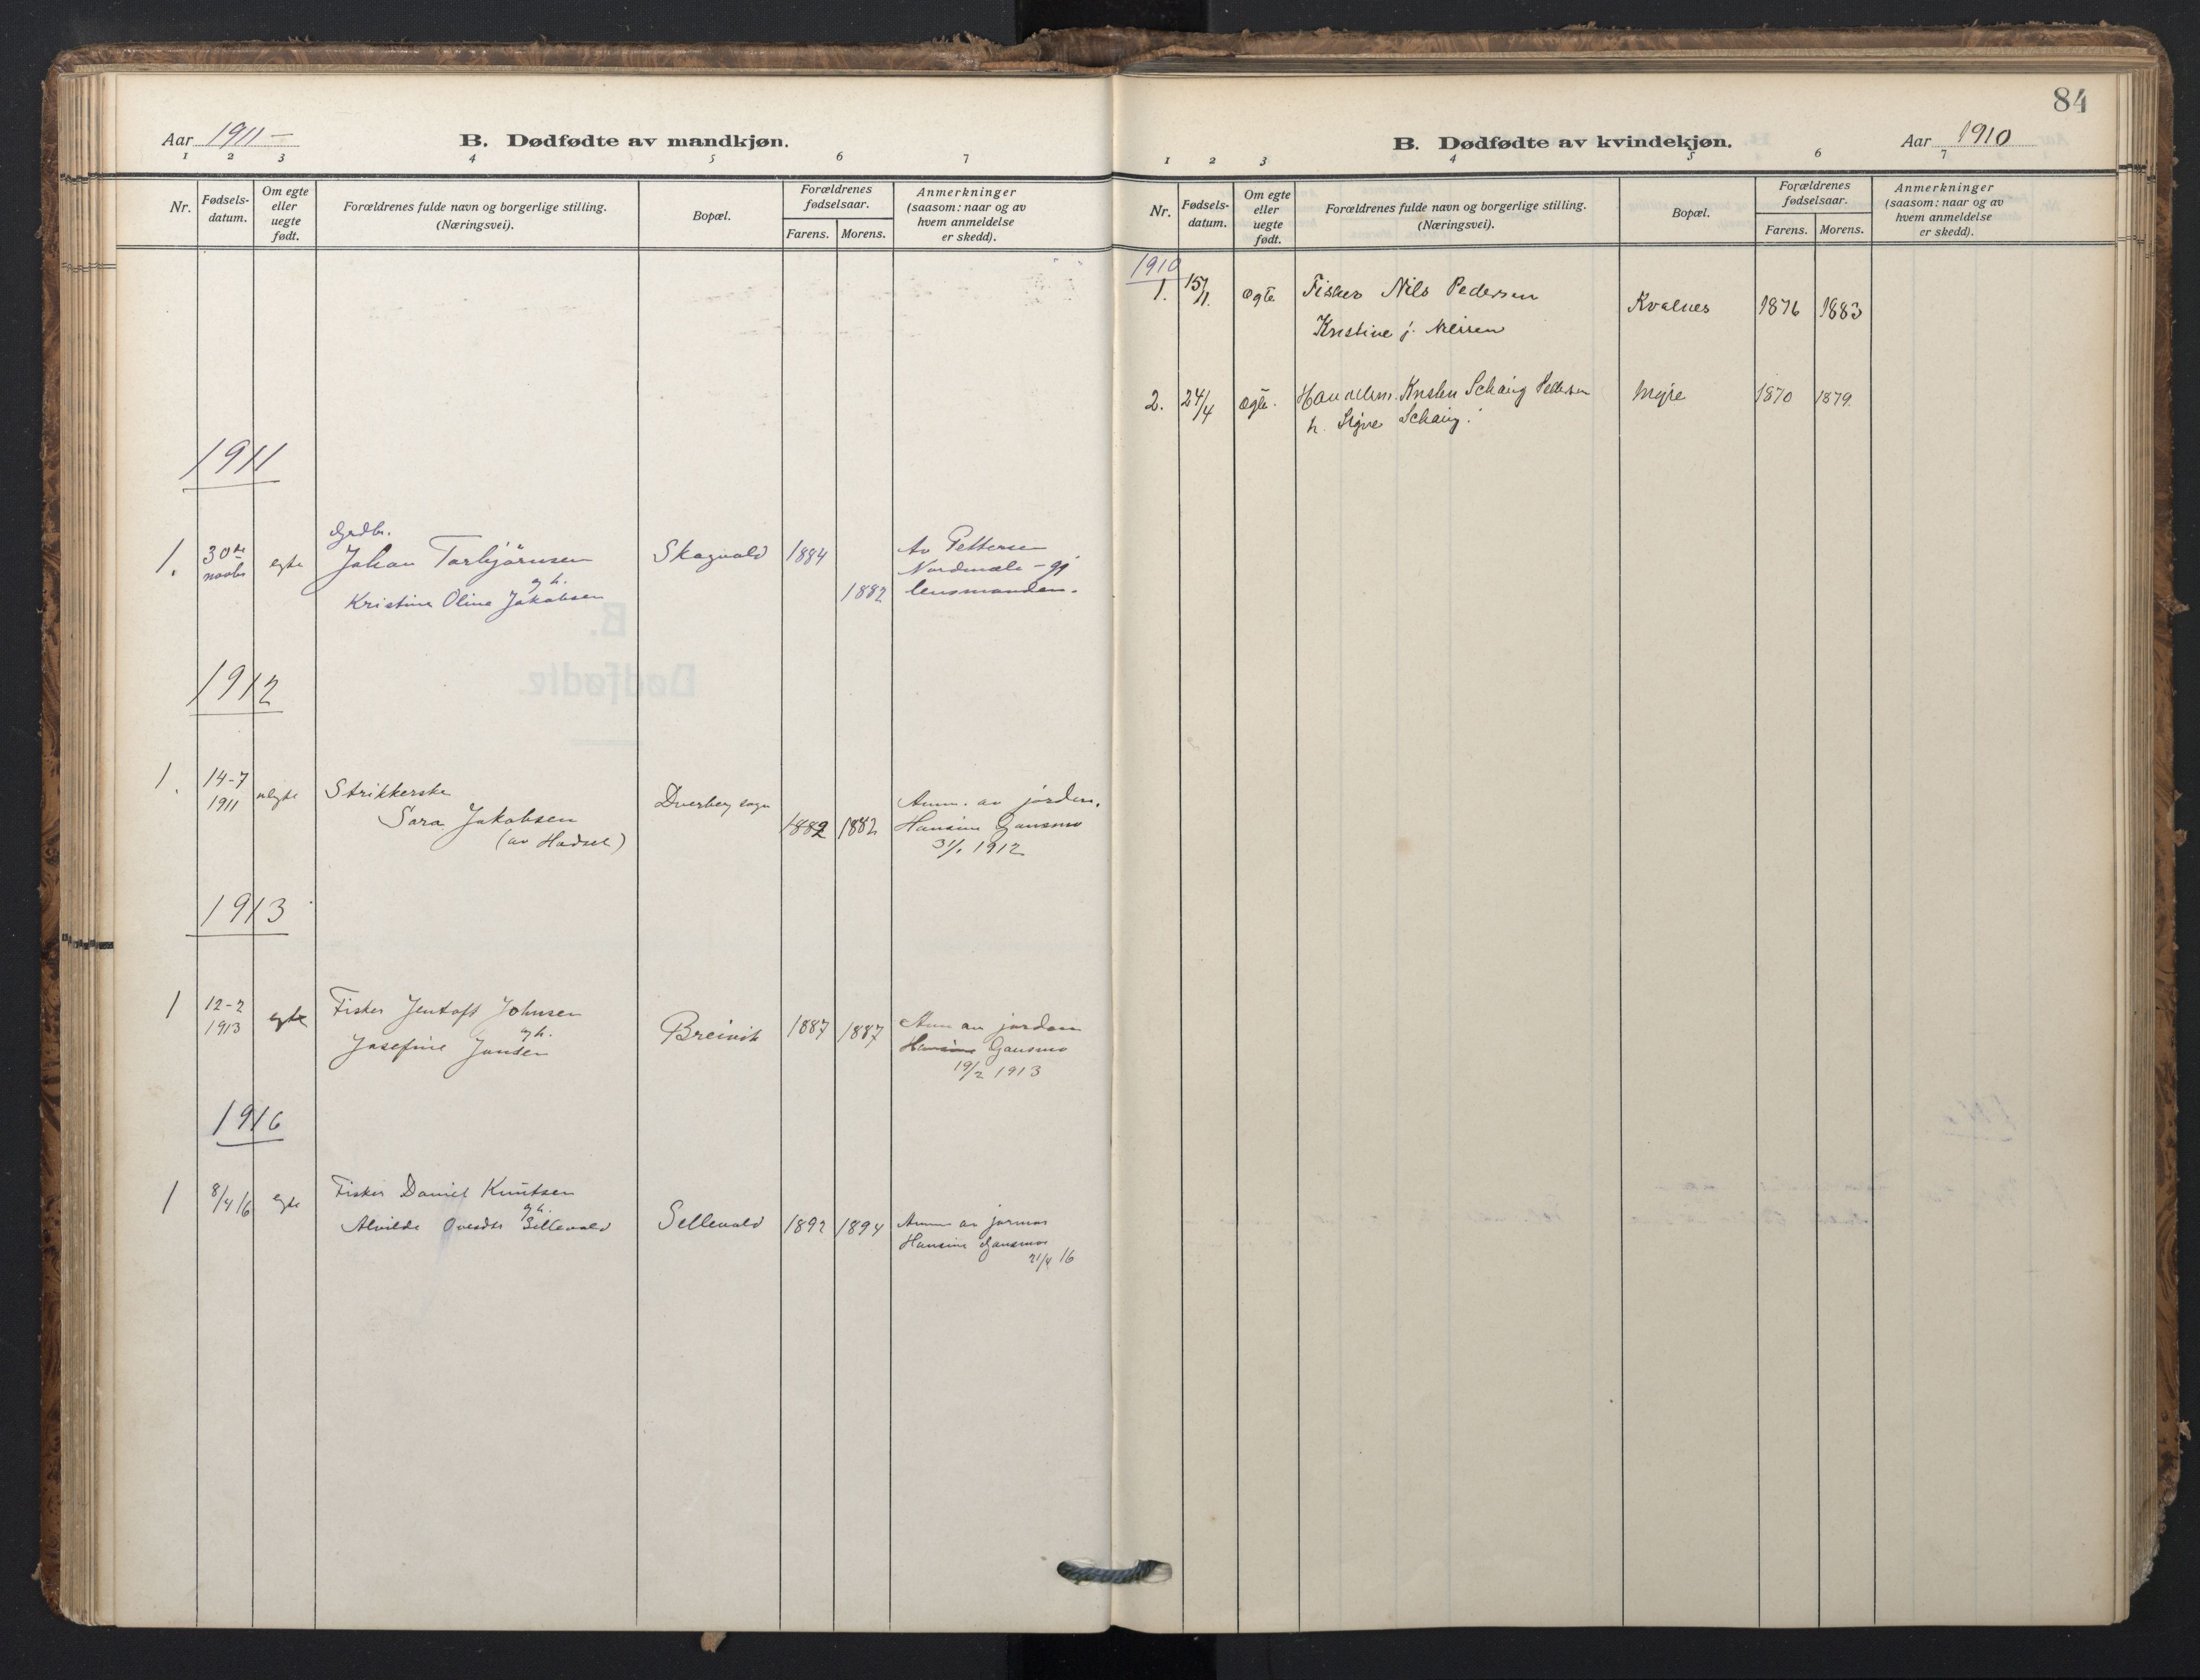 Aar 1911 —
B. Dødfødte av mandkjøn.
1 2 3 4 5 6 7
Nr.
Fødsels-
datum.
Om egte
eller
uegte
født.
Forældrenes fulde navn og borgerlige stilling.
(Næringsvei).
Bopæl.
Forældrenes
fødselsaar.
Farens. Morens.
Anmerkninger
(saasom: naar og av
hvem anmeldelse
er skedd).
1911
1. 30te novbr egte
Grdbr.
Johan Torbjörnsen
og h.
Kristine Oline Jakobsen
Skogvold 1884 1882
Av Pettersen
Nordmela - gj
lensmanden.
1912
1. 14-7
1911 uegte
Strikkerske
Sara Jakobsen
(av Hadsel)
Dverberg sogn
1882 1882
Anm. av jordm.
Hansine Gausmo
31/1 1912
1913
1 12-2
1913 egte
Fisker Jentoft Johnsen
og h.
Josefine Jonsen
Breivik 1887 1887
Anm av jordm
Hansine Gausmo
19/2 1913
1916
1 8/4 16 egte
Fisker Daniel Knutsen
og h.
Alvilde Sellevold
Sellevold 1892 1894
Anm av jormor
Hansine Gausmo
21/4 16
84
B. Dødfødte av kvindekjøn.
Aar 1910
1 2 3 4 5 6 7
Nr.
Fødsels-
datum.
Om egte
eller
uegte
født.
Forældrenes fulde navn og borgerlige stilling.
(Næringsvei).
Bopæl.
Forældrenes
fødselsaar.
Farens. Morens.
Anmerkninger
(saasom: naar og av
hvem anmeldelse
er skedd).
1910
1. 15/1. ægte Fisker Nils Pedersen
Kristine j. Nilsen
Kvalnes 1876 1883
2. 24/4 ægte. Schøing Pedersen
h. Signe Schøing.
Myre 1870 1879.